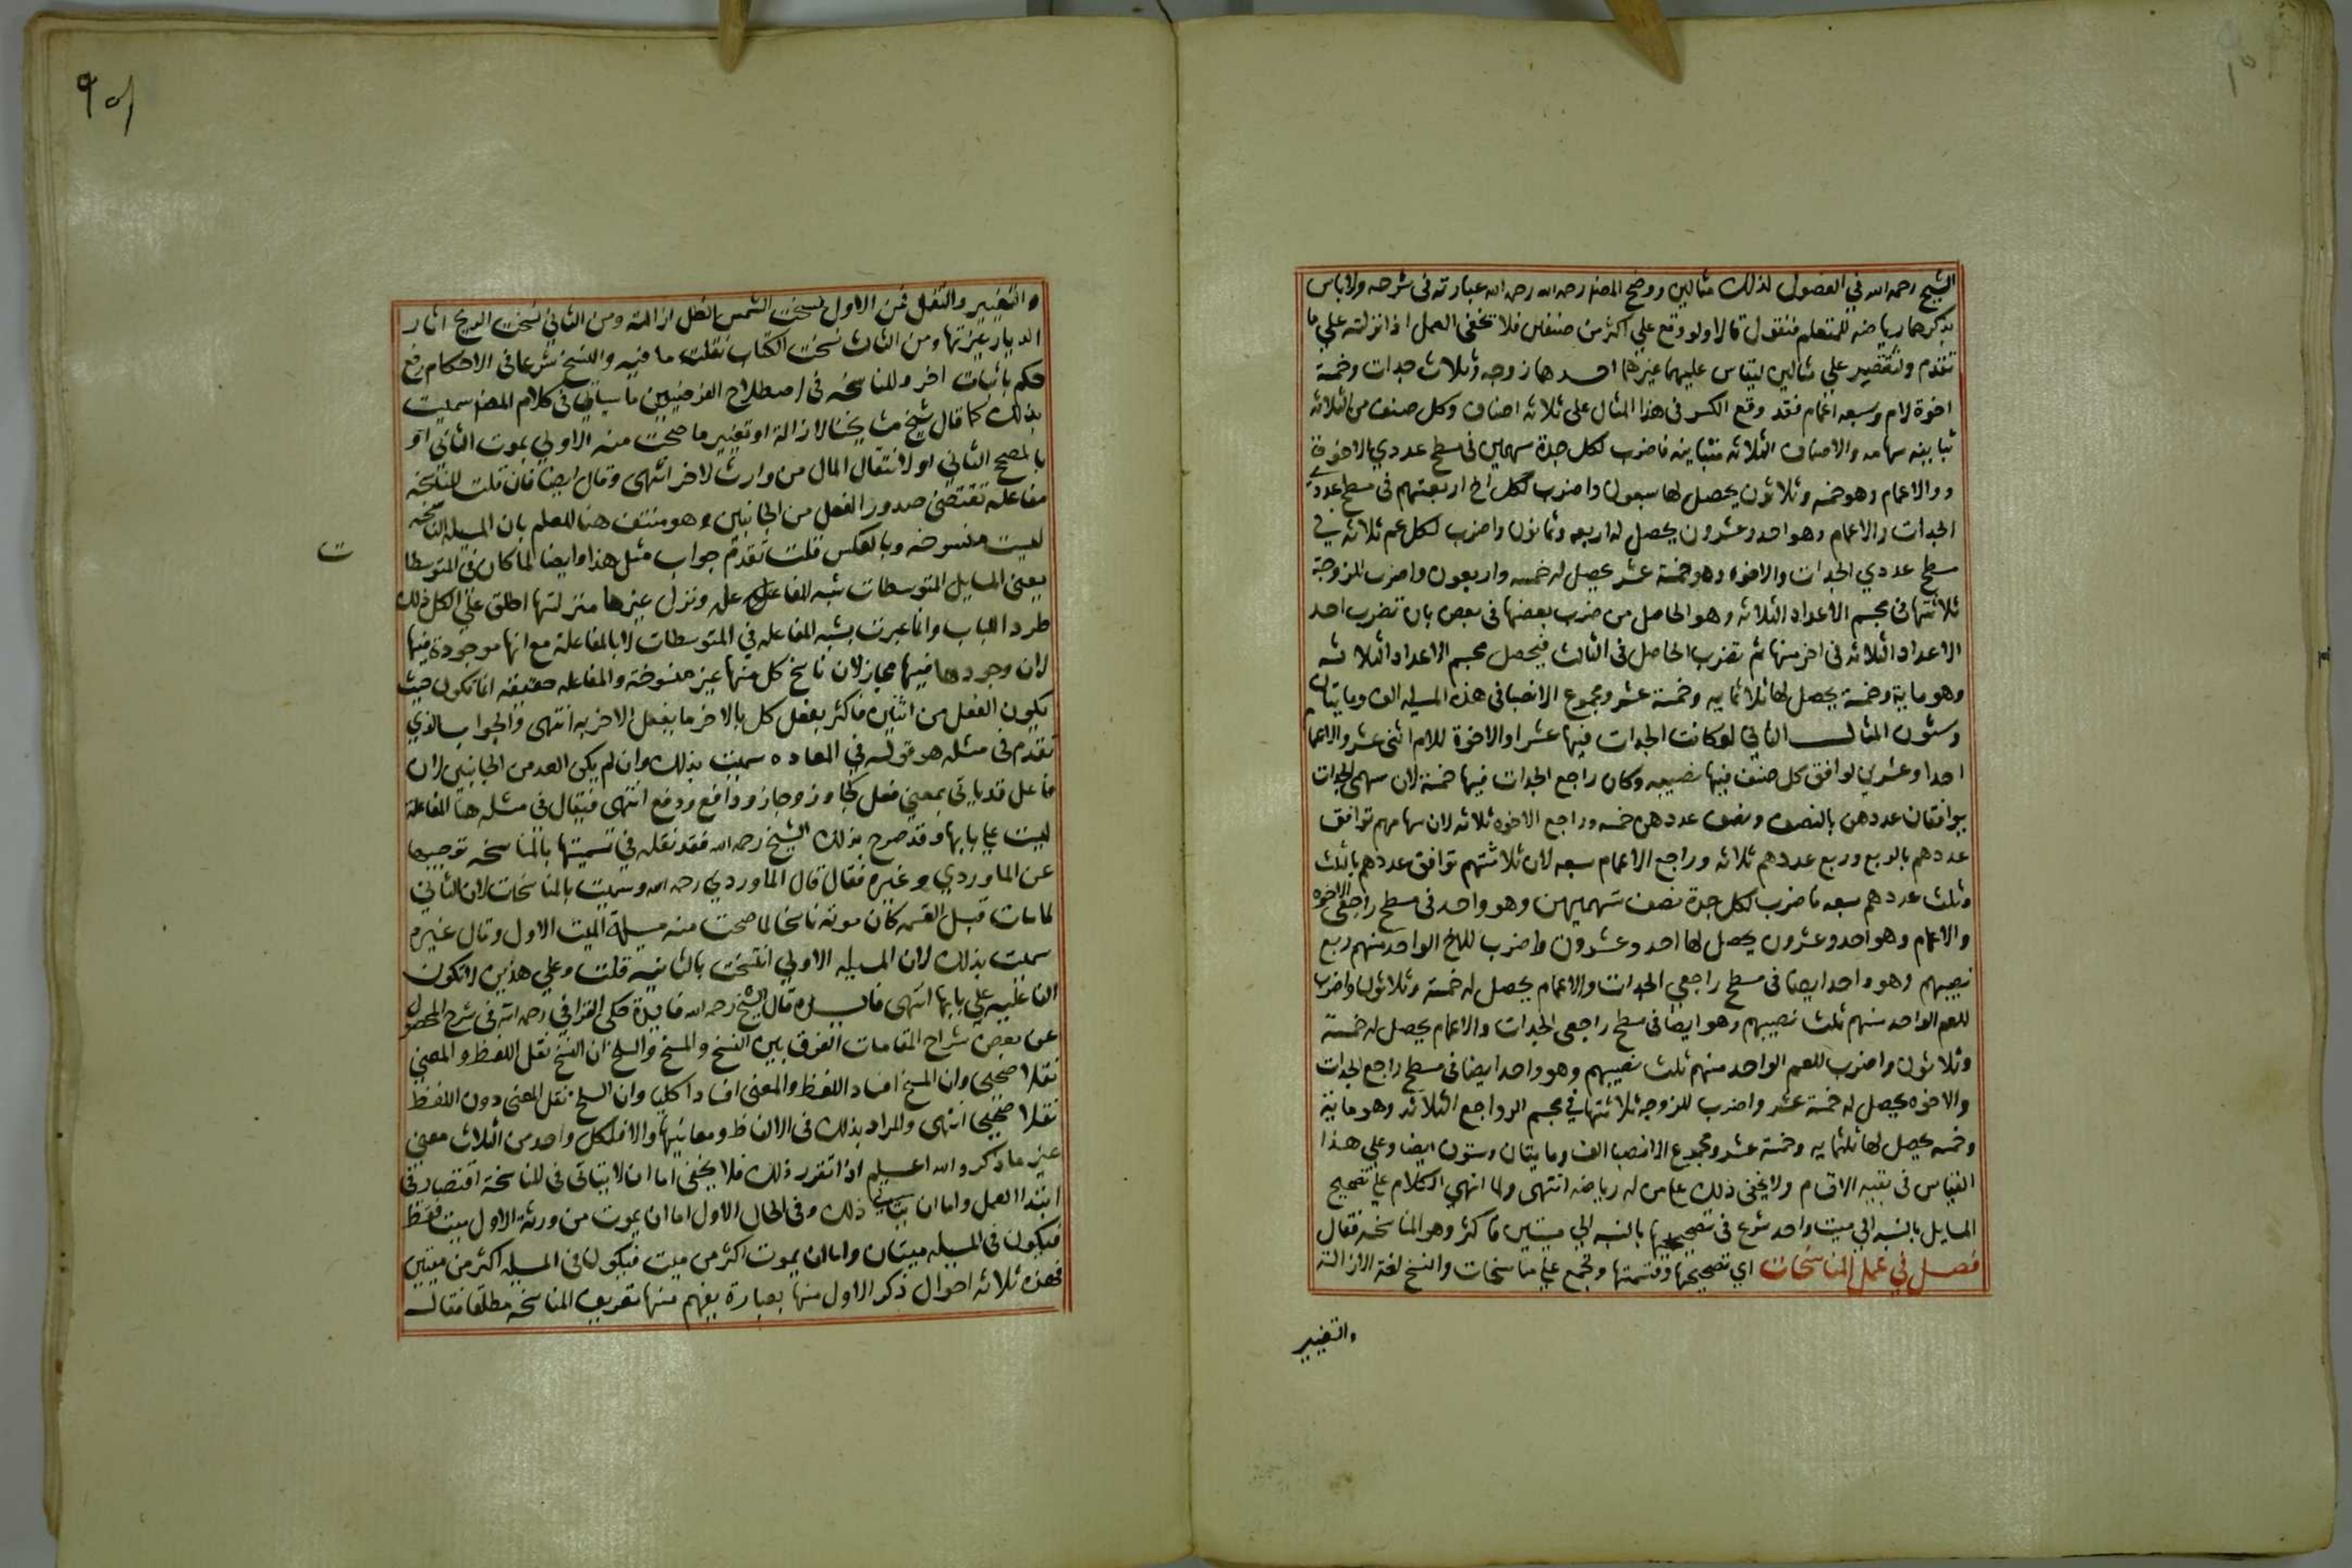 الشيخ رحمه الله في الفصول لذلك مثالين ووضح المصنف رحمه الله عبارته في شرحه ولا باس
بذكرهما رياضه للمتعلم فنقول قالا ولو وقع علي اكثر من صنفين فلا تخفى العمل اذا نزلته علي ما
تقدم ولنقتصر علي مثالين ليقاس عليهما غيرهما احدهما زوجه وثلاث جدات وخمسة
اخوة لام وسبعه اعمام فقد وقع الكسر في هذا المثال على ثلاثه اصناف وكل صنف من الثلاثه
تباينه سهامه والاصناف الثلاثه متباينه فاضرب لكل جدة سهمين في مسطح عددي الاخوة
و والاعمام وهو خمسه وثلاثون يحصل لها سبعون واضرب لكل اخ اربعتهم في مسطح عددي
الجدات والاعمام وهو احد وعشرون يحصل له اربعه وثمانون واضرب لكل عم ثلاثه في
مسطح عددي الجدات والاخوه وهو خمسة عشر يحصل له خمسه واربعون واضرب للزوجة
ثلاثتها في مجسم الاعداد الثلاثه وهو الحاصل من ضرب بعضها في بعض بان تضرب احد
الاعداد الثلاثه في اخر منها ثم تضرب الحاصل في الثالث فيحصل مجسم الاعداد الثلاثه
وهو ماية وخمسة يحصل لها ثلاثمايه وخمسة عشر ومجموع الانصبا في هذه المسيله الف ومايتان
وستون المثال الثاني لو كانت الجدات فيها عشرا والاخوة للام اثنى عشر والاعما
احدا وعشرين لوافق كل صنف فيها نصيبه وكان راجع الجدات فيها خمسة لان سهمى الجدات
يوافقان عددهن بالنصف ونصف عددهن خمسه وراجع الاخوه ثلاثه لان سهامهم توافق
عددهم بالربع وربع عددهم ثلاثه وراجع الاعمام سبعه لان ثلاثتهم توافق عددهم بالثلث
وثلث عددهم سبعه فاضرب لكل جدة نصف سهميهن وهو واحد في مسطح راجعى الاخوه
والاعمام وهو احد وعشرون يحصل لها احد وعشرون واضرب للاخ الواحد منهم ربع
نصيبهم وهو واحد ايضا في مسطح راجعي الجدات والاعمام يحصل له خمسة وثلاثون واضرب
للعم الواحد منهم ثلث نصيبهم وهو ايضا في مسطح راجعى الجدات والاعمام يحصل له خمسة
وثلاثون واضرب للعم الواحد منهم ثلث نصيبهم وهو واحد ايضا في مسطح راجع الجدات
والاخوه يحصل له خمسة عشر واضرب للزوجه ثلاثتها في مجسم الرواجع الثلاثه وهو ماية
وخمسه يحصل لها ثلثمايه وخمسة عشر ومجموع الانصبا الف ومايتان وستون ايضا وعلي هذا
القياس في بقيه الاقسام ولا يخفى ذلك على من له رياضه انتهى ولما انهى الكلام علي تصحيح
المسايل بالنسبه الي ميت واحد شرع في تصحيحها بالنسبه الي ميتين فاكثر وهو المناسخه فقال
فصل في عمل المناسخات اي تصحيحها وقسمتها وتجمع علي مناسخات والنسخ لغة الازالة
والتغيير
٩٥١
والتغيير والنقل فمن الاول نسخت الشمس الظل ازالته ومن الثاني نسخت الريح اثار
الديار غيرتها ومن الثالث نسخت الكتاب نقلت ما فيه والنسخ شرعا في الاحكام رفع
حكم باثبات اخر وللمناسخه في اصطلاح الفرضيين ما سياتي في كلام المصنف سميت
بذلك كما قال شيخ مشايخنا لازالة او تغيير ما صحت منه الاولي بموت الثاني او
بالمصحح الثاني او لانتقال المال من وارث لاخر انتهى وقال ايضا فان قلت المناسخه
مفاعله تقتضى صدور الفعل من الجانبين وهو منتف هنا للعلم بان المسيله الناسخه
ليست منسوخه وبالعكس قلت تقدم جواب مثل هذا وايضا لما كان في المتوسطا
ت
يعنى المسايل المتوسطات شبه المفاعله ونزل غيرها منزلتها اطلق علي الكل ذلك
طردا للباب وانما عبرت بشبه المفاعله في المتوسطات لا بالمفاعلة مع انها موجودة فيها
لان وجودها فيها مجاز لان ناسخ كل منها غير منسوخة والمفاعله حقيقه انما تكون حيث
يكون الفعل من اثنين فاكثر يفعل كل بالاخر ما يفعل الاخر به انتهى والجواب الذي
تقدم في مثله هو قوله في المعاده سميت بذلك وان لم يكن العد من الجانبين لان
فاعل قد ياتي بمعني فعل كجاوز وجاز ودافع ودفع انتهى فيقال في مثله هنا المفاعلة
ليست علي بابها وقد صرح بذلك الشيخ رحمه الله فقد نقله في تسميتها بالمناسخه توجيها
عن الماوردي وغيره فقال قال الماوردي رحمه الله وسميت بالمناسخات لان الثاني
لما مات قبل القسمه كان موته ناسخا لما صحت منه مسيلة الميت الاول وقال غيره
سميت بذلك لان المسيله الاولي انتسخت بالثانيه قلت وعلي هذين لا تكون
المفاعله علي بابها انتهى فايده قال الشيخ رحمه الله فايدة حكى القرافي رحمه الله في شرح المحصول
عن بعض شراح المقامات الفرق بين النسخ والمسخ والسلخ ان النسخ نقل اللفظ والمعني
نقلا صحيحا وان المسخ افساد اللفظ والمعنى افسادا كليا وان السلخ نقل المعنى دون اللفظ
نقلا صحيحا انتهى والمراد بذلك في الالفاظ ومعانيها والا فلكل واحد من الثلاث معني
غير ما ذكر والله اعلم اذا تقرر ذلك فلا يخفى اما ان لا يتاتى في المناسخة اقتصار في
ابتدا العمل واما ان يتاتى ذلك وفي الحال الاول اما ان يموت من ورثة الاول ميت فقط
فيكون في المسيله ميتان واما ان يموت اكثر من ميت فيكون في المسيله اكثر من ميتين
فهذه ثلاثه احوال ذكر الاول منها بعبارة يفهم منها تعريف المناسخة مطلقا فقال